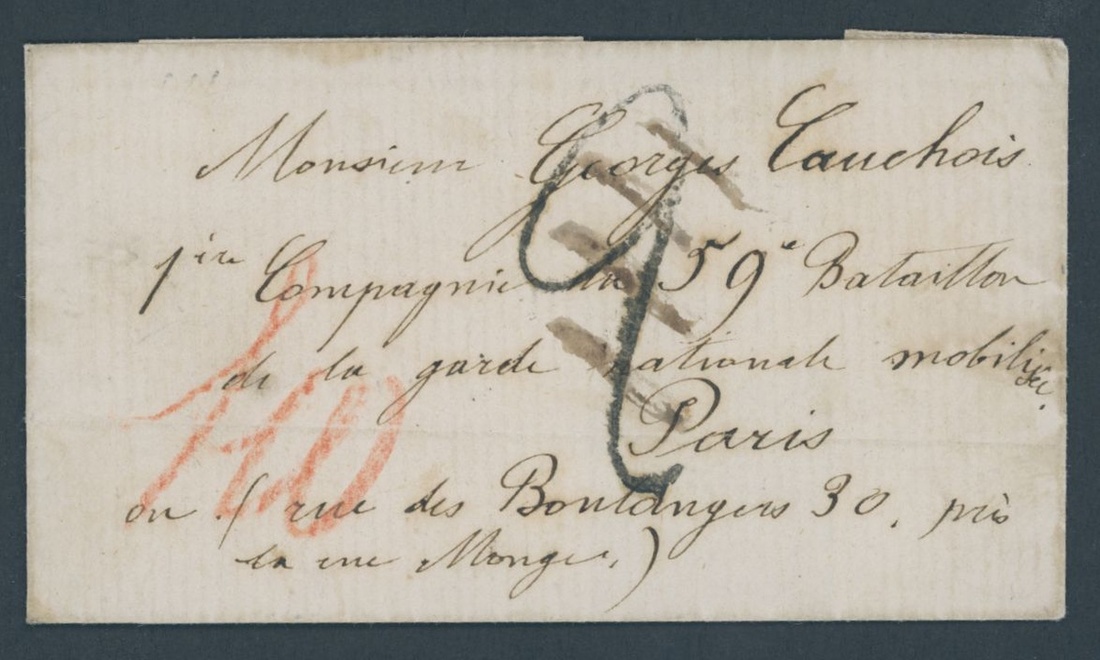 Monsieur Georges Cauchois
1ère Compagnie du 59e Bataillon
de la garde nationale mobilisée.
Paris
ou (rue des Boulangers 30, près
la rue Monge.)
2